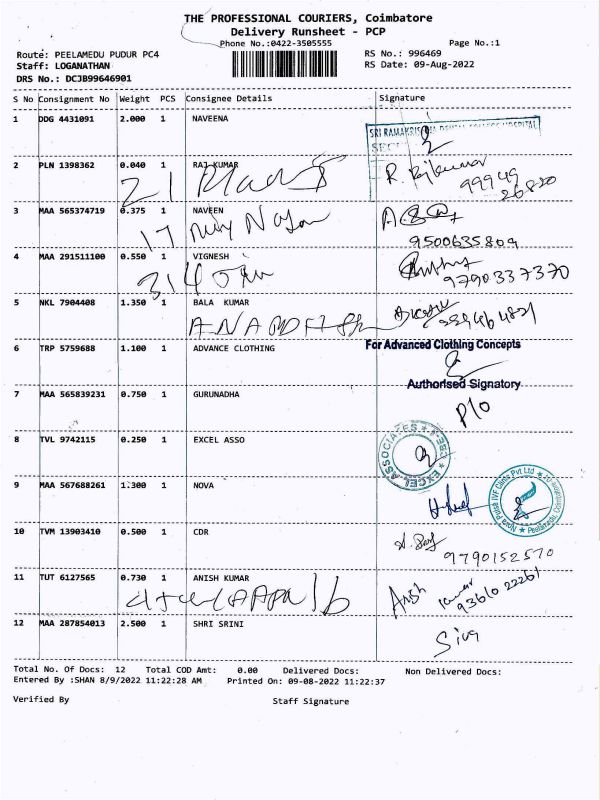 THE PROFESSIONAL COURIERS, Coimbatore
Delivery Runsheet - PCP
Phone No.:0422-3505555 Page No.:1
Route: PEELAMEDU PUDUR PC4 RS No.: 996469
Staff: LOGANATHAN RS Date: 09-Aug-2022
DRS No.: DCJB99646901
S No Consignment No Weight PCS Consignee Details Signature
1 DDG 4431091 2.000 1 NAVEENA
2 PLN 1398362 0.040 1 RAJ KUMAR
21 R. Rajkumar
99949
26820
3 MAA 565374719 0.375 1 NAVEEN
17
9500635809
4 MAA 291511100 0.550 1 VIGNESH
9790337370
5 NKL 7904408 1.350 1 BALA KUMAR
6 TRP 5759688 1.100 1 ADVANCE CLOTHING For Advanced Clothing Concepts
Authorised Signatory
7 MAA 565839231 0.750 1 GURUNADHA
P/O
8 TVL 9742115 0.250 1 EXCEL ASSO
EXCEL ASSOCIATES ★ CBE-4 ★
9 MAA 567688261 1.300 1 NOVA
Nova Pulse IVF Clinic Pvt Ltd
10 TVM 13903410 0.500 1 CDR
9790152570
11 TUT 6127565 0.730 1 ANISH KUMAR
Anish Kumar
93610 22261
12 MAA 287854013 2.500 1 SHRI SRINI
Siva
Total No. Of Docs: 12 Total COD Amt: 0.00 Delivered Docs: Non Delivered Docs:
Entered By :SHAN 8/9/2022 11:22:28 AM Printed On: 09-08-2022 11:22:37
Verified By Staff Signature